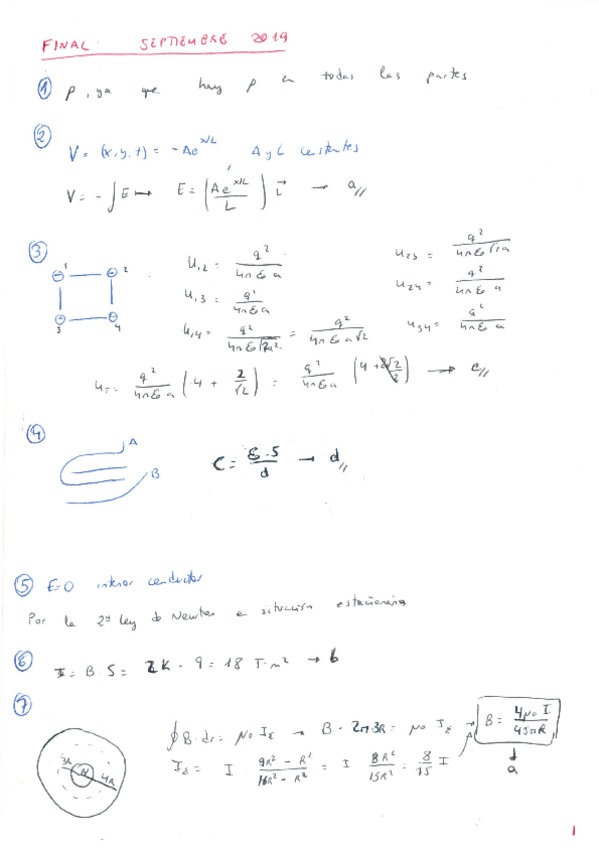 FINAL SEPTIEMBRE 2019
① p, ya que hay p en todas las partes
②
V = (x,y,t) = -Ae^x/L, A y L constantes
V = - ∫ E → E = (Ae^x/L / L) i⃗ → a//
③
1 2
3 4
U12 = q² / 4πε₀ a
U13 = q² / 4πε₀ a
U14 = q² / 4πε₀ √2a² = q² / 4πε₀ a√2
U23 = q² / 4πε₀ √2a
U24 = q² / 4πε₀ a
U34 = q² / 4πε₀ a
U = q² / 4πε₀ a (4 + 2/√2) = q² / 4πε₀ a (4 + 2√2/2) → c//
④
A
B
C = ε₀ · S / d → d//
⑤ E=0 interior conductor
Por la 2ª ley de Newton en situación estacionaria
⑥
= B · S = 2K · 9 = 18 T·m² → b
⑦
3R R 4R
∮ B · dr = μ₀ I → B · 2π3R = μ₀ I → B = 4μ₀ I / 45πR
I = I 9R² - R² / 16R² - R² = I 8R² / 15R² = 8/15 I
a
1